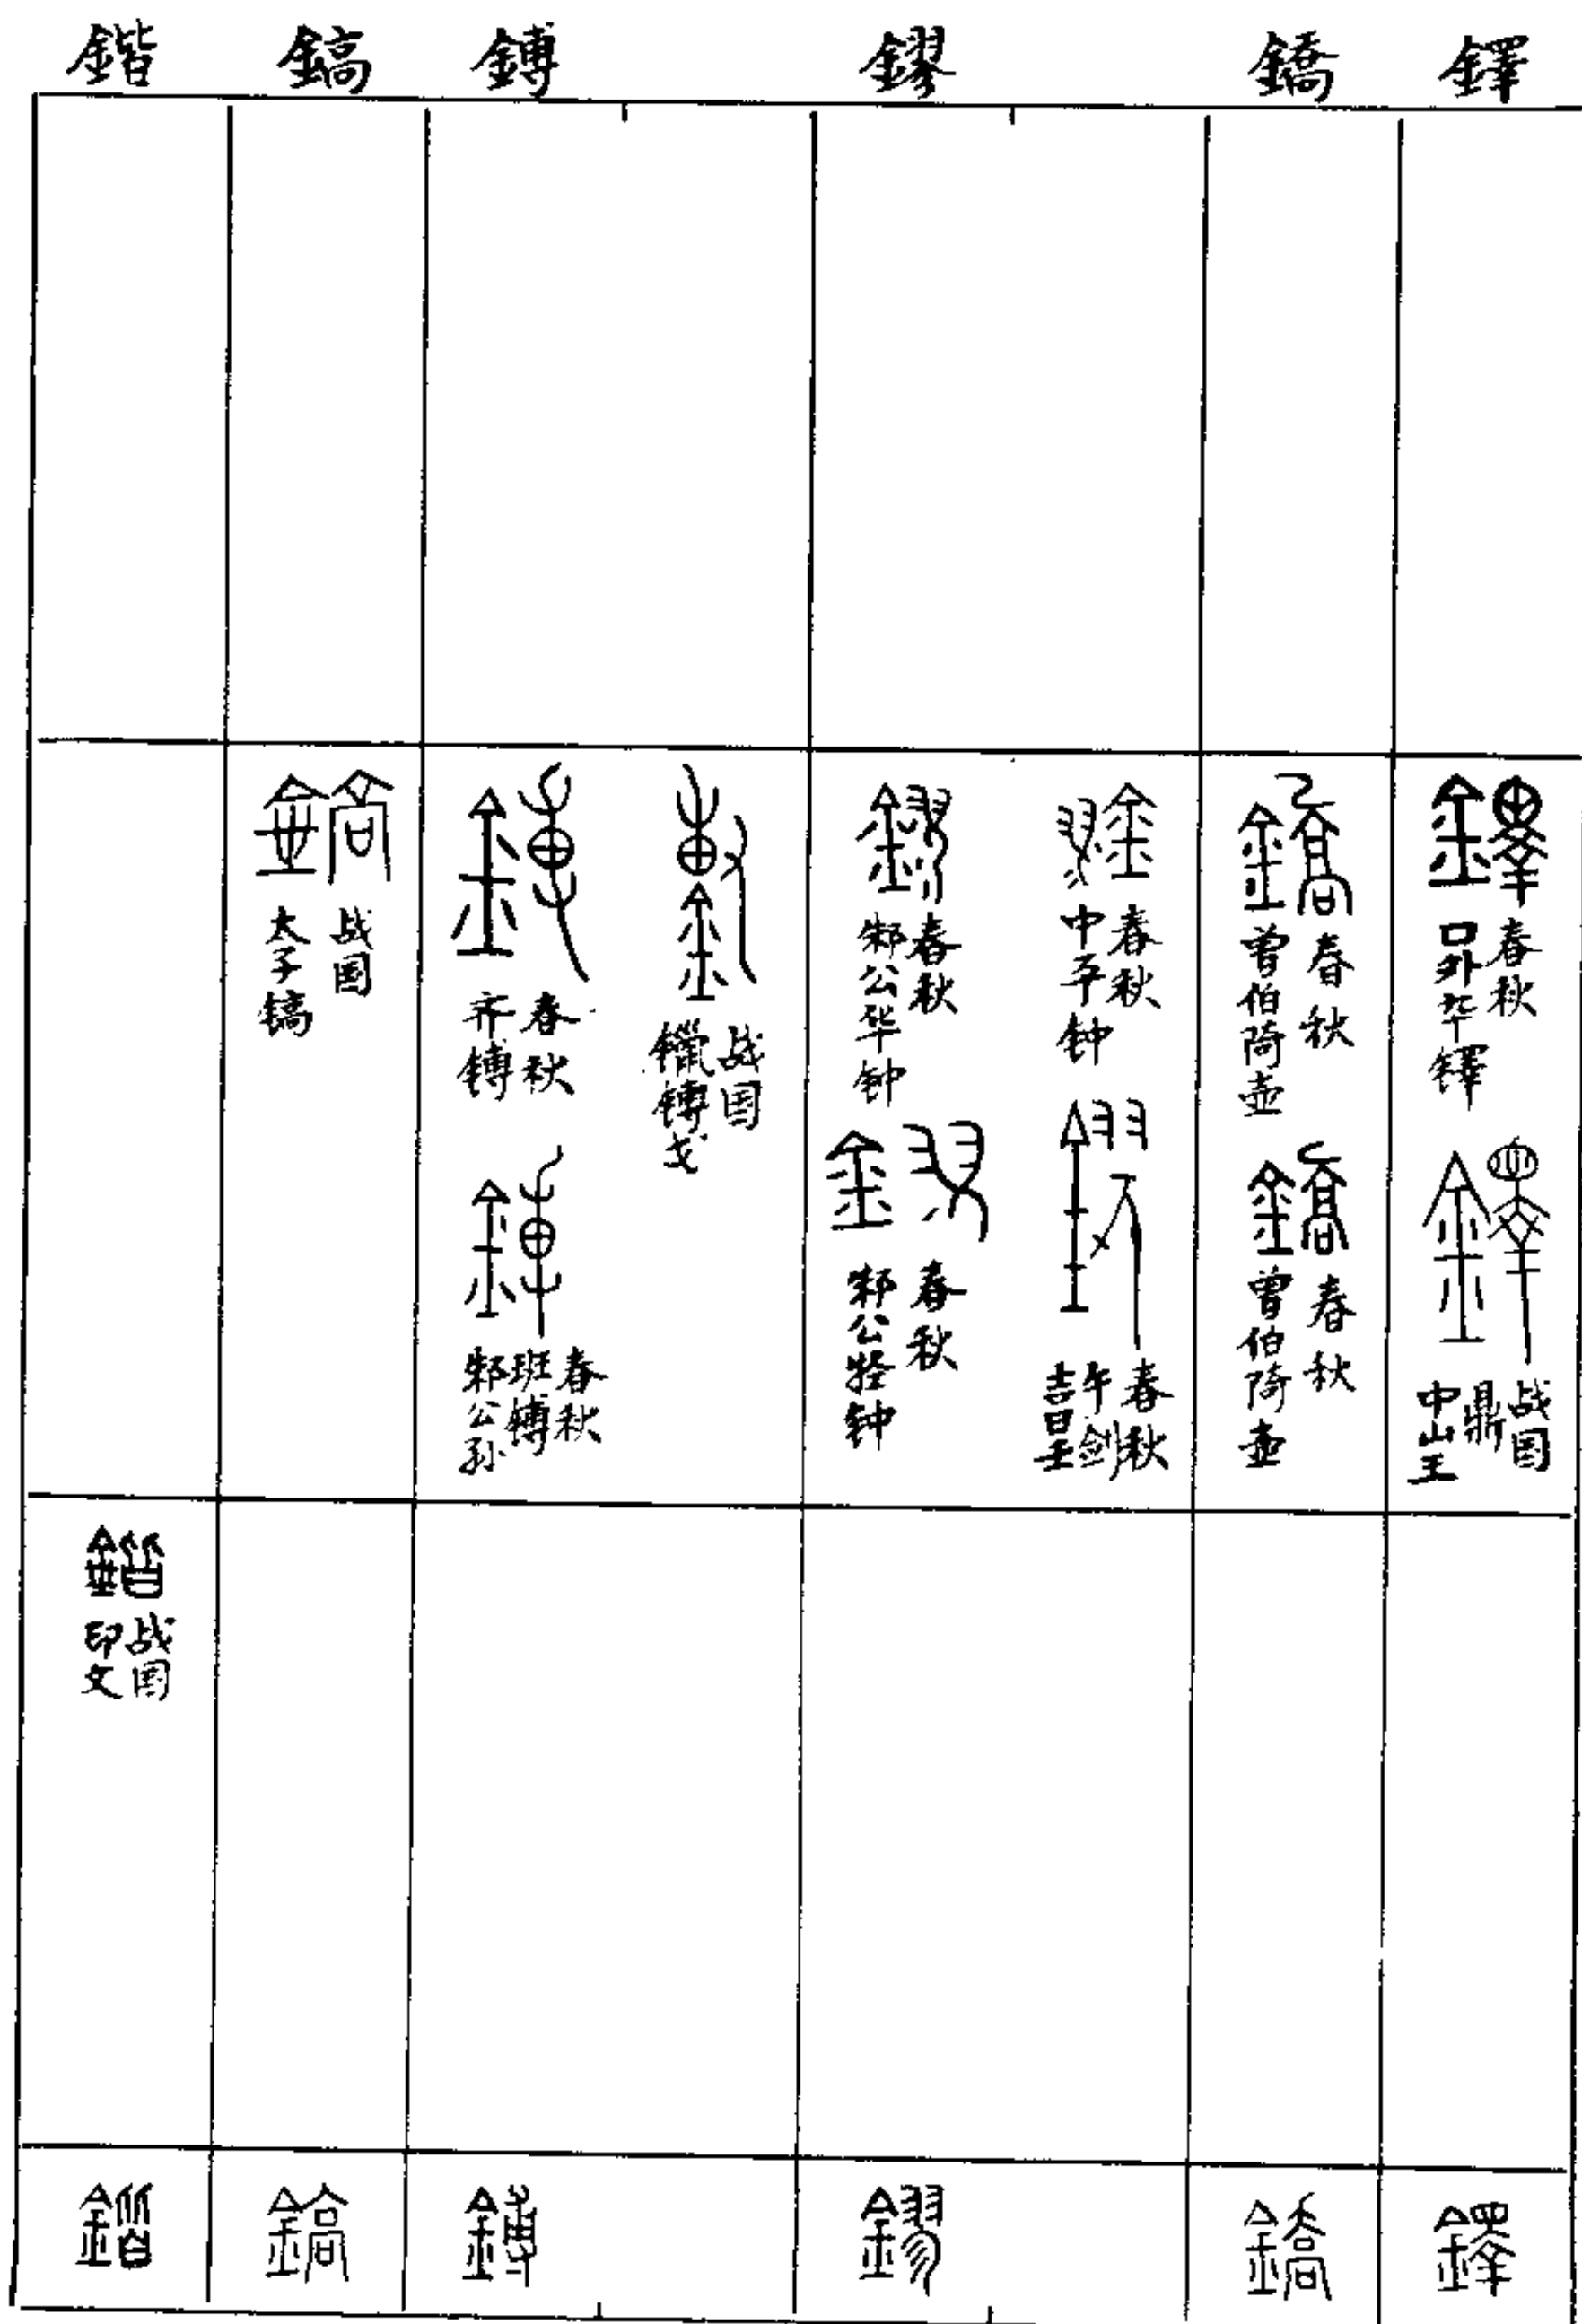 鐸
鐈
鏐
鎛
鎬
鍇
春秋
□外卒鐸
战国
中山王
鼎
春秋
曾伯陭壶
春秋
曾伯陭壶
春秋
中子平钟
春秋
吉日壬
午剑
春秋
邾公华钟
春秋
邾公牼钟
战国
鎛戈
春秋
齐鎛
春秋
邾公孙
班鎛
战国
太子镐
战国
印文
鐸
鐈
鏐
鎛
鎬
鍇